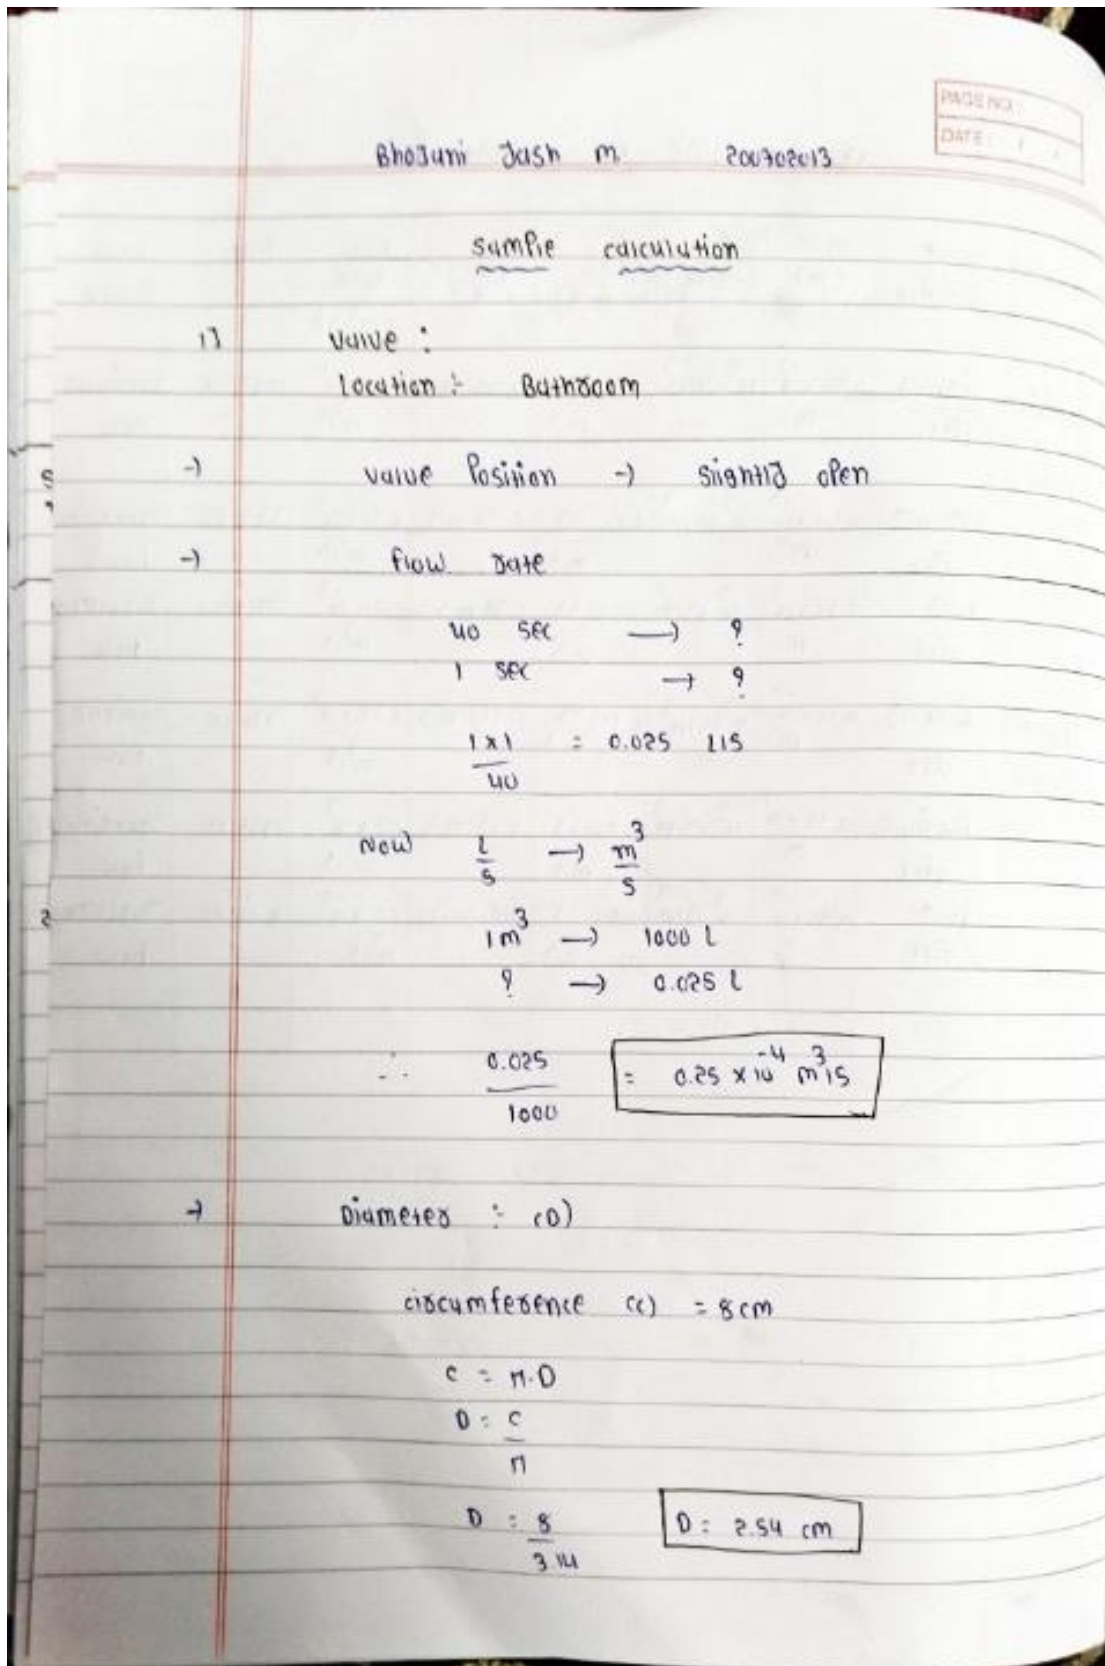 PAGE NO.:
DATE: / /
Bhojani Jash m 200702013
Sample calculation
1] valve :
Location :- Bathroom
→ valve Position → slightly open
→ flow rate
40 sec → ?
1 sec → ?
1 x 1 / 40 = 0.025 l/s
Now l/s → m³/s
1 m³ → 1000 l
? → 0.025 l
∴ 0.025 / 1000 = 0.25 x 10⁻⁴ m³/s
→ Diameter :- (D)
circumference (c) = 8 cm
c = π.D
D = c / π
D = 8 / 3.14 D = 2.54 cm